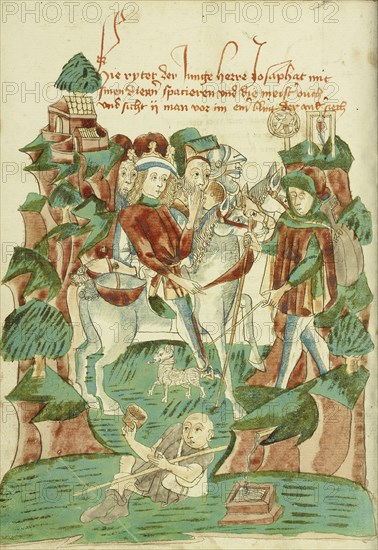 Hie rytet der Junge herre Josaphat mit
sinen dienern spatzieren und die meister ouch
und sicht ij man vor im ein blint der ander siech